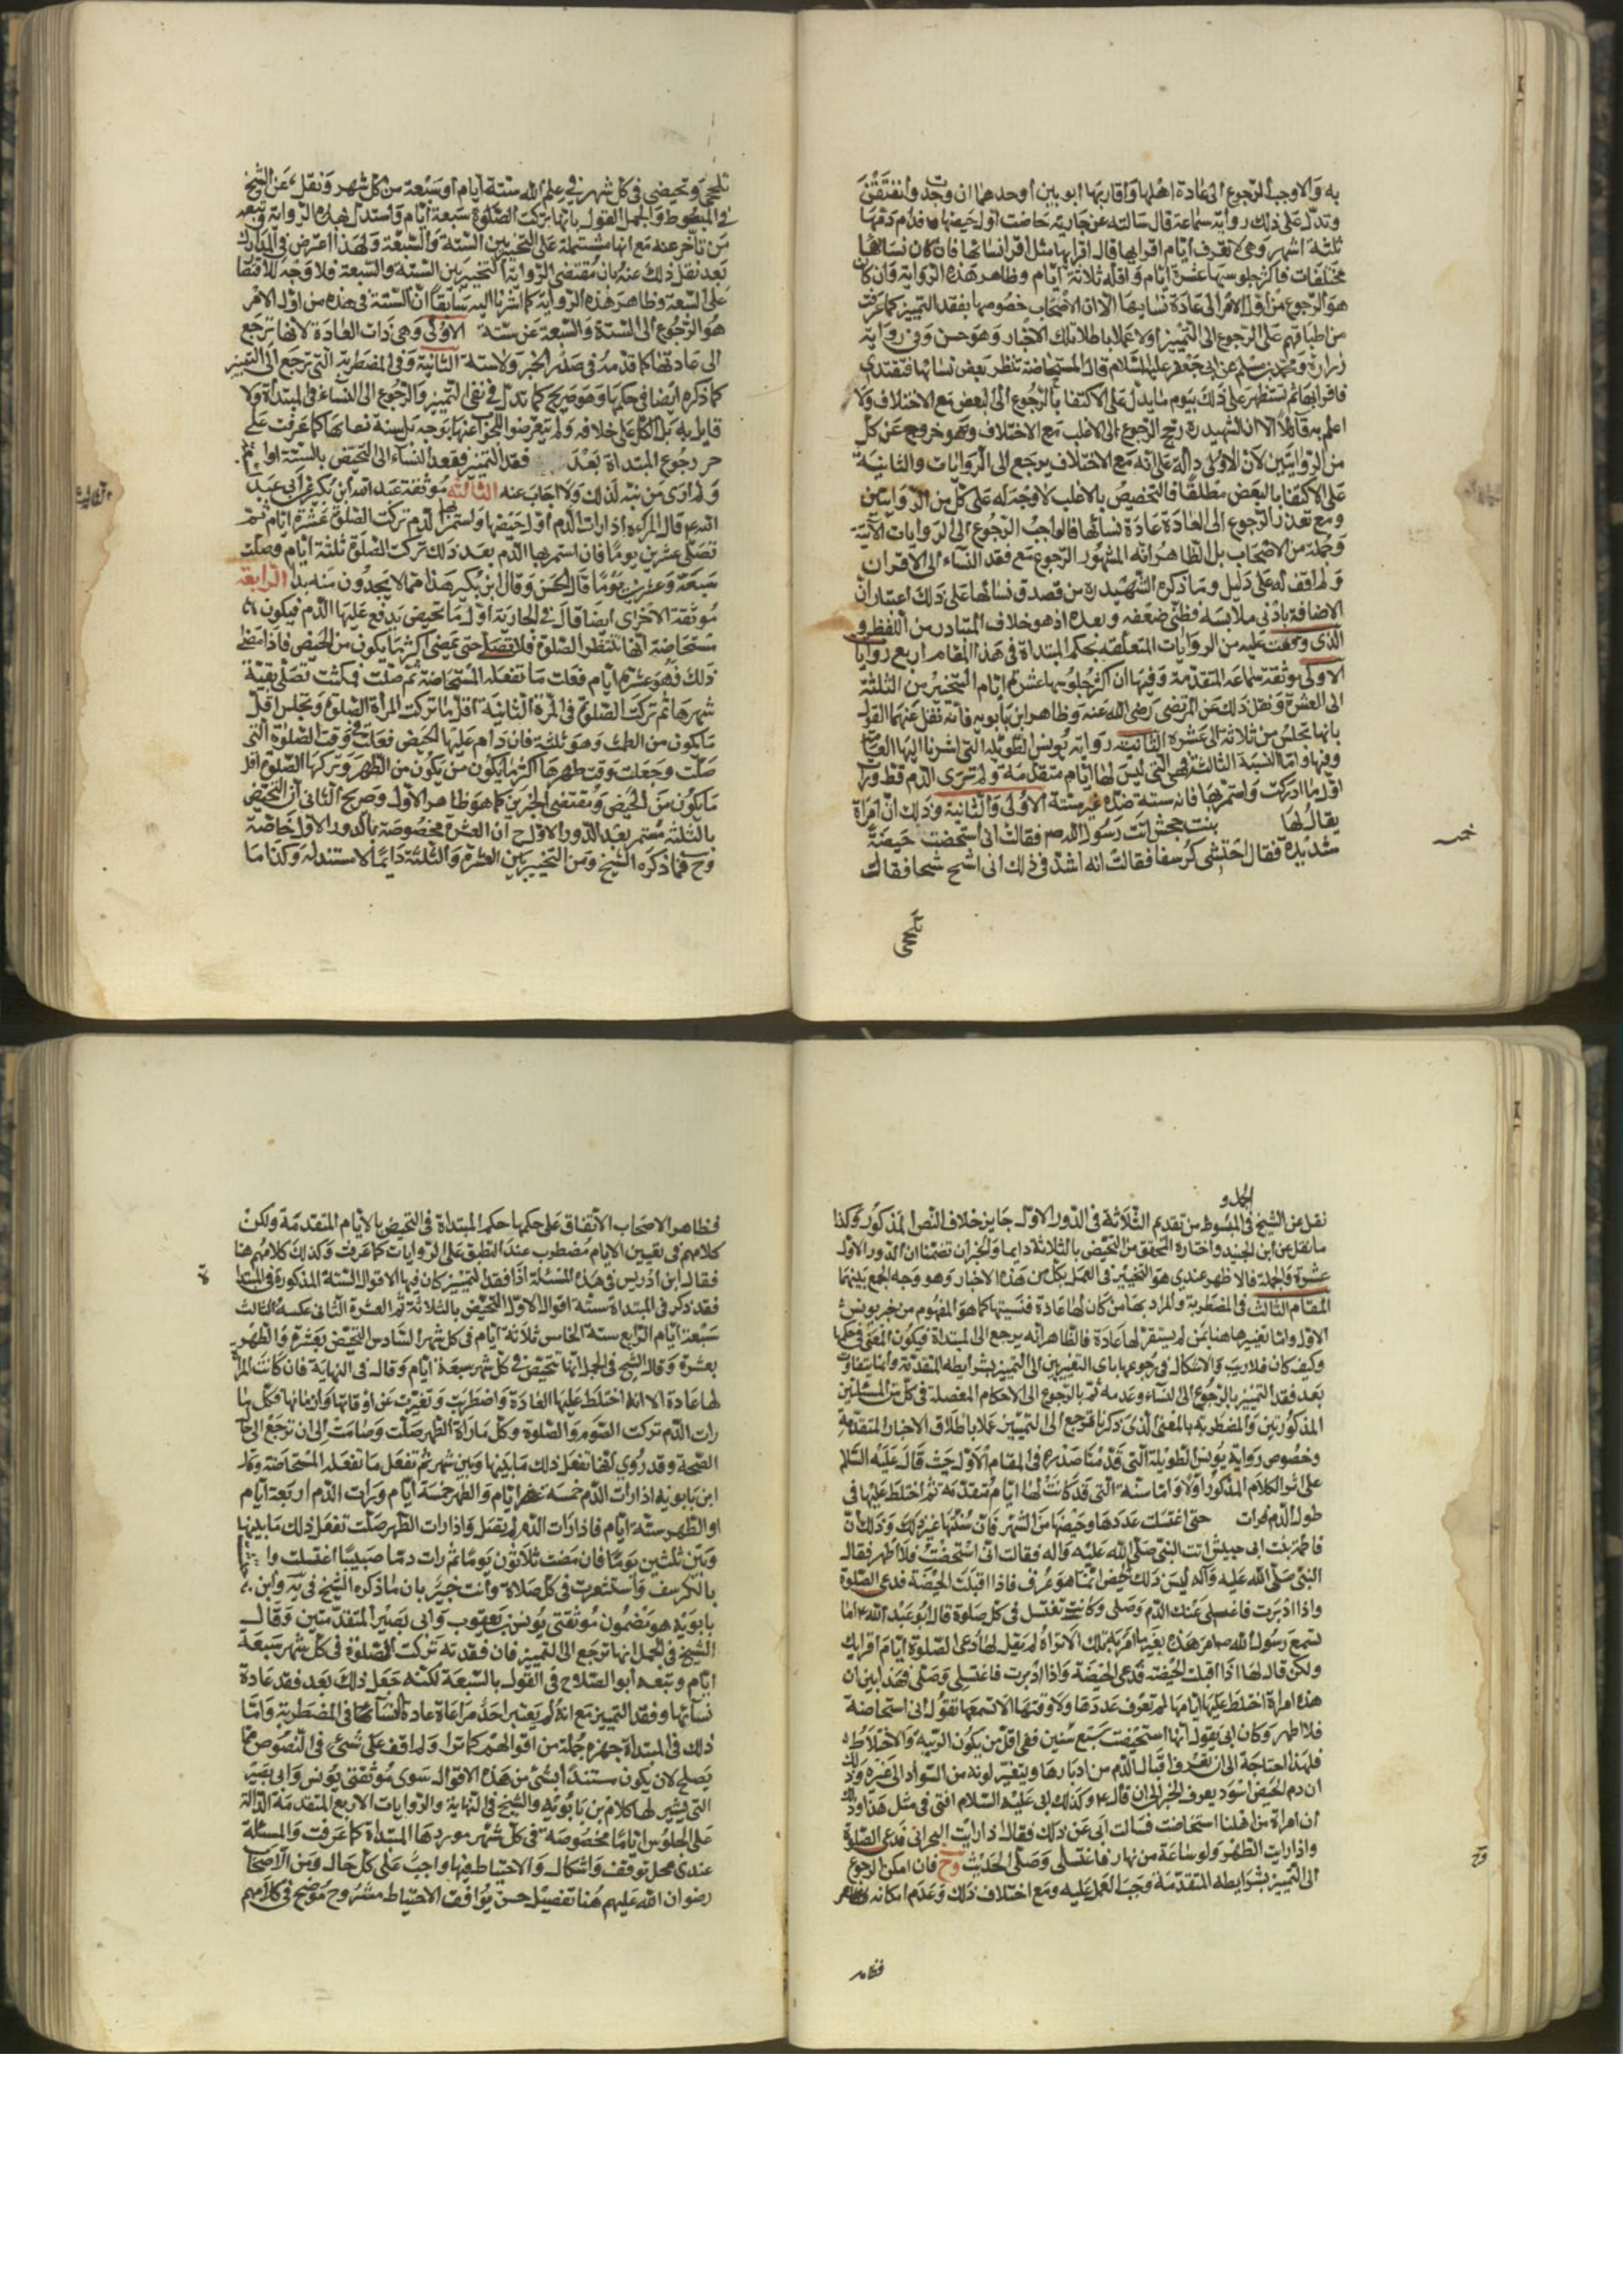 به والاوجب الرجوع الى عادة اهلها واقاربها ابوين او احدهما ان وجدت وانتفقن
وتدل على ذلك رواية سماعة قال سالته عن جارية حاضت اول حيضها فدام دمها
ثلثة اشهر وهى لا تعرف ايام اقرابها قال اقرابها مثل اقرا نسائها فان كان نسائها
مختلفات فاكثر جلوسها عشرة ايام واقله ثلاثة ايام وظاهر هذه الرواية وان كان
هو الرجوع من اول الامر الى عادة نسائها الا ان الاصحاب خصوصها بفقد التميز كما عرفت
من اطباقهم على الرجوع الى التمييز اولا عملا باطلاق تلك الاخبار وهو حسن وفى رواية
زرارة ومحمد بن مسلم عن ابى جعفر عليهما السلام قال المستحاضة تنظر بعض نسائها فتقتدى
فاقرابها ثم تستظهر على ذلك بيوم ما يدل على الاكتفا بالرجوع الى البعض مع الاختلاف ولا
اعلم به قائلا الا ان الشهيد ره رجح الرجوع الى الاغلب مع الاختلاف وهو خروج عن كل
من الروايتين لان الاولى دالة على انه مع الاختلاف يرجع الى الروايات والثانية
على الاكتفا بالبعض مطلقا فالتخصيص بالاغلب لا وجه له على كل من الروايتين
ومع تعذر الرجوع الى العادة عادة نسائها فالواجب الرجوع الى الروايات الآتية
وجملة من الاصحاب بل الظاهر انه المشهور الرجوع مع فقد النساء الى الاقران
ولم اقف له على دليل وما ذكره الشهيد ره من قصدق نسائها على ذلك اعتبار ان
الاضافة بادنى ملابسة فظنى ضعفه وبعده اذ هو خلاف المتبادر من اللفظ و
الذى وقفت عليه من الروايات المتعلقه بحكم المبتداة فى هذا المقام اربع روايات
الاولى موثقة سماعة المتقدمة وفيها ان اكثر جلوسها عشرة ايام التخيير من الثلثة
الى العشرة ونقل ذلك عن المرتضى رضى الله عنه وظاهر ابن بابويه فانه نقل عنهما القول
بانها تجلس من ثلاثة الى عشرة الثانية رواية يونس الطويلة التى اشرنا اليها
وفيها واما السنة الثالثة فهى التى ليس لها ايام متقدمة ولم ترى الدم قط ورات
اول ما ادركت واستمر بها فان سنة هذه غير سنة الاولى والثانية وذلك ان امراة
يقال لها بنت جحش اتت رسول الله ص فقالت انى استحضت حيضة
شديدة فقال احتشى كرسفا فقالت انه اشد فى ذلك انى اثج ثجا فقال
تلجمى
تلجمى وتحيضى فى كل شهر فى علم الله ستة ايام او سبعة من كل شهر ونقل عن الشيخ
فى المبسوط والجمل القول بانها تركت الصلوة سبعة ايام واستدل بهذه الرواية وتبعه
من تاخر عنه مع انها مشتملة على التخيير بين الستة والسبعة ولهذا اعترض فى المدارك
بعد نقل ذلك عنه بان مقتضى الرواية التخيير بين الستة والسبعة فلا وجه للاقتصار
على السبعة وظاهر هذه الرواية كما اشرنا اليه سابقا ان السنة فى هذه من اول الامر
هو الرجوع الى الستة والسبعة عن سنة الاولى وهى ذات العادة لانها ترجع
الى عادتها كما قدمه فى صدر الخبر ولا سنة الثانية وفى المضطربة التى ترجع الى التميز
كما ذكره ايضا فى حكمها وهو صريح كما تدل فى نفى التمييز والرجوع الى النساء فى المبتداة ولا
قايل به بل الكل على خلافه ولم يتعرضوا للجواب عنها بوجه
رجوع المبتداة بعد فقد التميز فقد النساء الى التحيض بالستة
ولم ارى من نبه لذلك ولا اجاب عنه الثالثة موثقة عبد الله ابن بكير عن ابى عبد
الله ع قال المراة اذا رات الدم اول حيضها واستمر الدم تركت الصلوة عشرة ايام ثم
تصلى عشرين يوما فان استمر بها الدم بعد ذلك تركت الصلوة ثلثة ايام وصلت
سبعة وعشرين يوما قال الحسن وقال ابن بكير هذا مما لا يجدون منه بدا الرابعة
موثقة الاخرى ايضا قال فى الجارية اول ما تحيض يدفع عليها الدم فيكون
مستحاضة انها تنتظر الصلوة فلا تصلى حتى تمضى اكثر ما يكون من الحيض فاذا مضى
ذلك فهو عشرة ايام فعلت ما تفعله المستحاضة ثم صلت فمكثت تصلى بقية
شهرها ثم تركت الصلوة فى المرة الثانية اقل ما تركت المراة الصلوة وتجلس اقل
ما يكون من الطمث وهو ثلثة فان دام عليها الحيض فعلت فى وقت الصلوة التى
صلت وجعلت وقت طهرها اكثر ما يكون من الطهر وتركها الصلوة اقل
ما يكون من الحيض ومقتضى الخبرين كما هو ظاهر الاول وصريح الثانى ان التحيض
بالثلثة مستمر بعد الدور الاول ح ان العشرة مخصوصة بالدور الاول خاصة
وح فما ذكره الشيخ ومن التخيير بين العشرة والثلثة دايما لا مستند له وكذا ما
نقل عن الشيخ فى المبسوط من تقديم الثلاثة فى الدور الاول جايز خلاف النص المذكور وكذا
ما نقل عن ابن الجنيد واختاره المحقق من التحيض بالثلاثة دايما والخبران تضمنا ان الدور الاول
عشرة وبالجملة فالاظهر عندى هو التخيير فى العمل بكل من هذه الاخبار وهو وجه الجمع بينهما
المقام الثالث فى المضطربة والمراد بها من كان لها عادة فنسيتها كما هو المفهوم من خبر يونس
الاول واما تفسيرها هنا بمن لم يستقر لها عادة فالظاهر انه يرجع الى المبتداة فيكون المعنى فى حكمها
وكيف كان فلا ريب ولا اشكال فى رجوعها باى التفسيرين الى التمييز بشرايطه المتقدمة وانما يتفاوت
بعد فقد التمييز بالرجوع الى النساء وعدمه ثم بالرجوع الى الاحكام المفصلة فى كل من المسئلتين
المذكورتين والمضطربة بالمعنى الذى ذكرنا ترجع الى التمييز عملا باطلاق الاخبار المتقدمة
وخصوص رواية يونس الطويلة التى قدمنا صدرها فى المقام الاول حيث قال عليه السلام
على اثر الكلام المذكور اولا واما سنة التى قد كانت لها ايام متقدمة ثم اختلط عليها فى
طول الدم حتى اغفلت عددها وحيضها من الشهر فان سنتها غير ذلك وذلك ان
فاطمة بنت ابى حبيش اتت النبى صلى الله عليه واله فقالت انى استحضت فلا اطهر فقال
النبى صلى الله عليه وآله ليس ذلك بحيض انما هو عرف فاذا اقبلت الحيضة فدعى الصلوة
واذا ادبرت فاغسلى عنك الدم وصلى وكانت تغتسل فى كل صلوة قال ابو عبد الله ع اما
تسمع رسول الله ص امر هذه بغير ما امر به تلك الا تراه لم يقل لها دعى الصلوة ايام اقرايك
ولكن قال لها اذا اقبلت الحيضة فدعى الحيضة واذا ادبرت فاغتسلى وصلى فهذا يبين ان
هذه امراة اختلط عليها ايامها لم تعرف عددها ولا وقتها الا تسمعها تقول انى استحاضة
فلا اطهر وكان ابى يقول انها استحيضت سبع سنين ففى اقل من يكون الريبة والاختلاط
فلهذا احتاجة الى ان تعرف اقبال الدم من ادبارها ويتغير لونه من السواد الى غيره وذلك
ان دم الحيض اسود يعرف الخبر الى ان قال ع وكذلك ابى عليه السلام افتى فى مثل هذا وذلك
ان امراة من اهلنا استحاضت فسالت ابى عن ذلك فقال اذا رايت البحرانى فدعى الصلوة
واذا رايت الطهر ولو ساعة من نهار فاغتسلى وصلى الحديث وح فان امكن الرجوع
الى التميز بشرايطه المتقدمة وجب العمل عليه ومع اختلاف ذلك وعدم امكانه
فظاهر
فظاهر الاصحاب الاتفاق على حكمها حكم المبتداة فى التحيض بالايام المتقدمة ولكن
كلامهم فى تعيين الايام مضطرب عند التطبق على الروايات كما عرفت وكذلك كلامهم هنا
فقال ابن ادريس فى هذه المسئلة اذا فقد التمييز كان فيها الاقوال الستة المذكورة فى المبتداة
فقد ذكر فى المبتداة ستة اقوال الاول التحيض بالثلاثة ثم العشرة الثانى عكسه الثالث
سبعة ايام الرابع ستة الخامس ثلاثة ايام فى كل شهر السادس التحيض بعشرة والطهر
بعشرة وقال الشيخ فى الجمل انها تتحيض فى كل شهر سبعة ايام وقال فى النهاية فان كانت المراة
لها عادة الا انه اختلط عليها العادة واضطربت وتغيرت عن اوقاتها وازمانها فكل ما
رات الدم تركت الصوم والصلوة وكل ما رات الطهر صلت وصامت الى ان ترجع الى حال
الصحة وقد روى انها تفعل ذلك ما بينها وبين شهر ثم تفعل ما تفعله المستحاضة وقال
ابن بابويه اذا رات الدم خمسة ايام والطهر خمسة ايام ورات الدم اربعة ايام
او الطهر ستة ايام فاذا رات الدم لم يصل واذا رات الطهر صلت تفعل ذلك ما بينها
وبين ثلثين يوما فان مضت ثلاثون يوما ثم رات دما صبيبا اغتسلت
بالكرسف واستثفرت فى كل صلاة وانت خبير بان ما ذكره الشيخ فى يه وابن
بابويه هو مضمون موثقتى يونس بن يعقوب وابى بصير المتقدمتين وقال
الشيخ فى الجمل انها ترجع الى التمييز فان فقدته تركت الصلوة فى كل شهر سبعة
ايام وتبعه ابو الصلاح فى القول بالسبعة لكنه جعل ذلك بعد فقد عادة
نسائها وفقد التمييز مع انه لم يعتبر احد مراعاة عادة نسائها فى المضطربة واما
ذلك فى المبتداة جملة من اقوالهم كما ترا ولم اقف على شىء فى النصوص مما
يصلح لان يكون مستندا لشئ من هذه الاقوال سوى موثقتى يونس وابى بصير
التى يشير لها كلام بن بابويه والشيخ فى النهاية والروايات الاربع المتقدمة الدالة
على الجلوس اياما مخصوصة فى كل شهر موردها المبتداة كما عرفت والمسئلة
عندى محل توقف واشكال والاحتياط فيها واجب على كل حال ومن الاصحاب
رضوان الله عليهم هنا تفصيل حسن يوافق الاحتياط مشروح موضح فى كلامهم